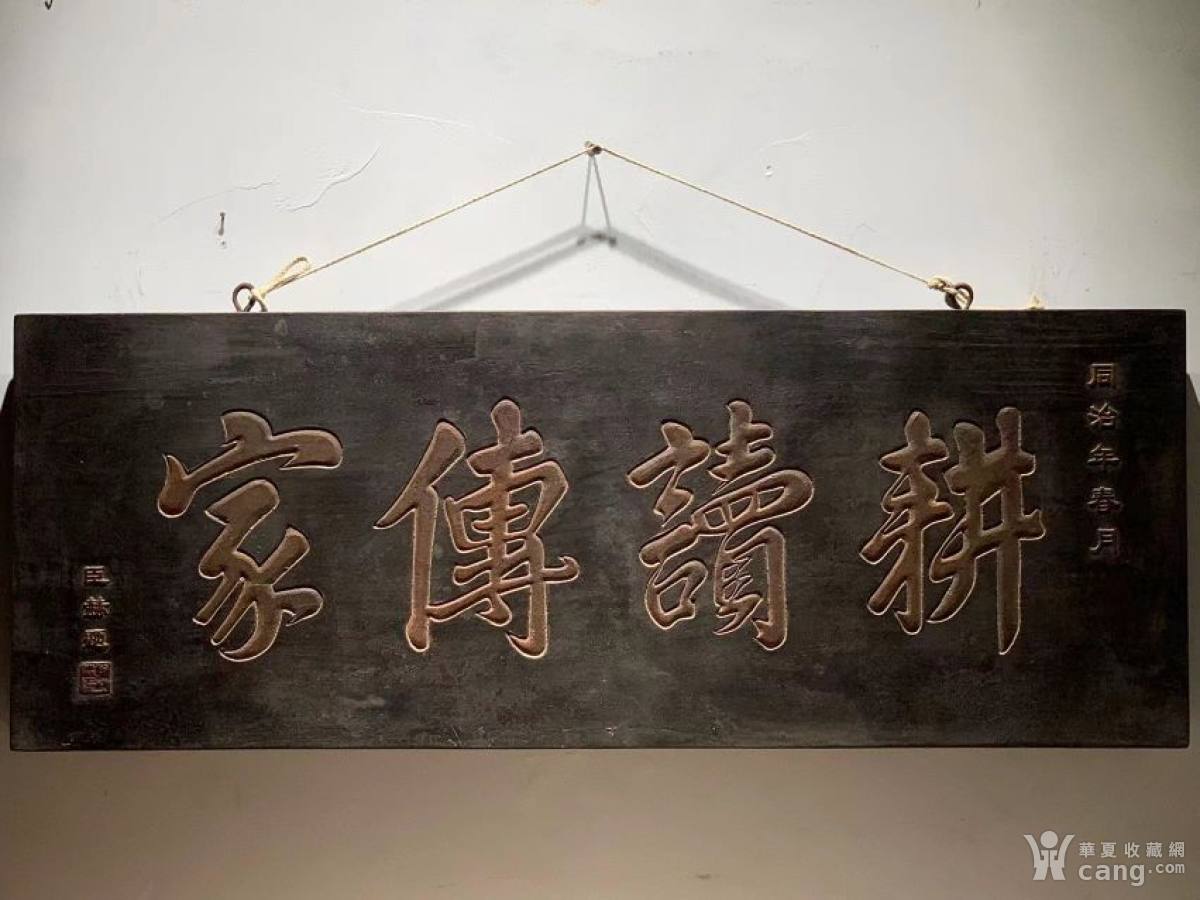 同治年春月
耕讀傳家
臣赫題
華夏收藏網
cang.com